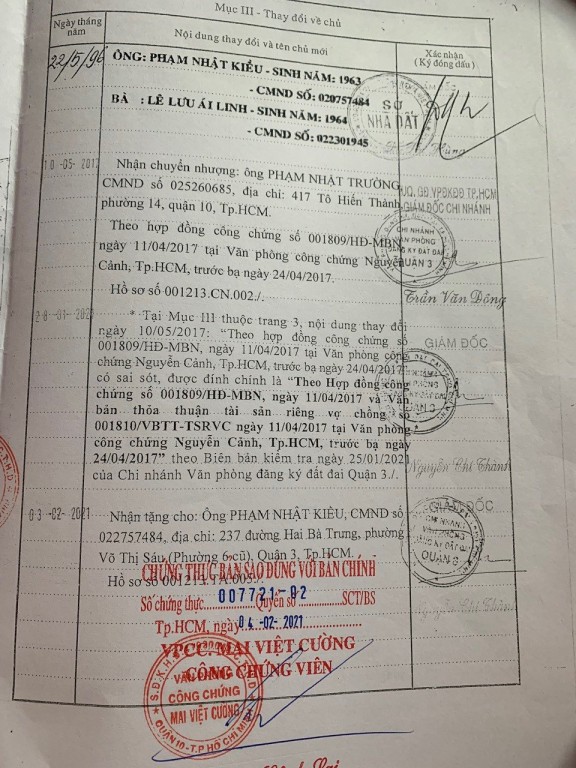 Mục III - Thay đổi về chủ
Ngày tháng năm
Nội dung thay đổi và tên chủ mới
Xác nhận
(Ký đóng dấu)
22/5/96
ÔNG: PHẠM NHẬT KIỀU - SINH NĂM: 1963
- CMND SỐ: 020757484
BÀ : LÊ LƯU ÁI LINH - SINH NĂM: 1964
- CMND SỐ: 022301945
SỞ
NHÀ ĐẤT
10-05-2017
Nhận chuyển nhượng: ông PHẠM NHẬT TRƯỜNG,
CMND số 025260685, địa chỉ: 417 Tô Hiến Thành,
phường 14, quận 10, Tp.HCM.
Theo hợp đồng công chứng số 001809/HĐ-MBN,
ngày 11/04/2017 tại Văn phòng công chứng Nguyễn
Cảnh, Tp.HCM, trước bạ ngày 24/04/2017.
Hồ sơ số 001213.CN.002./.
UQ. GĐ.VPĐKĐĐ TP.HCM
GIÁM ĐỐC CHI NHÁNH
CHI NHÁNH
VĂN PHÒNG
ĐĂNG KÝ ĐẤT ĐAI
QUẬN 3
Trần Văn Đông
28-01-2021
* Tại Mục III thuộc trang 3, nội dung thay đổi
ngày 10/05/2017: "Theo hợp đồng công chứng số
001809/HĐ-MBN, ngày 11/04/2017 tại Văn phòng công
chứng Nguyễn Cảnh, Tp.HCM, trước bạ ngày 24/04/2017"
có sai sót, được đính chính là "Theo Hợp đồng công
chứng số 001809/HĐ-MBN, ngày 11/04/2017 và Văn
bản thỏa thuận tài sản riêng vợ chồng số
001810/VBTT-TSRVC ngày 11/04/2017 tại Văn phòng
công chứng Nguyễn Cảnh, Tp.HCM, trước bạ ngày
24/04/2017" theo Biên bản kiểm tra ngày 25/01/2021
của Chi nhánh Văn phòng đăng ký đất đai Quận 3./.
GIÁM ĐỐC
Nguyễn Chí Thành
03-02-2021
Nhận tặng cho: Ông PHẠM NHẬT KIỀU, CMND số
022757484, địa chỉ: 237 đường Hai Bà Trưng, phường
Võ Thị Sáu (Phường 6 cũ), Quận 3, Tp.HCM.
Hồ sơ số 001213.TA.005./.
GIÁM ĐỐC
CHI NHÁNH
VĂN PHÒNG
ĐĂNG KÝ ĐẤT ĐAI
QUẬN 3
Nguyễn Chí Thành
CHỨNG THỰC BẢN SAO ĐÚNG VỚI BẢN CHÍNH
Số chứng thực 007721-02 Quyển số SCT/BS
Tp.HCM, ngày 04-02-2021
VPCC. MAI VIỆT CƯỜNG
CÔNG CHỨNG VIÊN
VĂN PHÒNG
CÔNG CHỨNG
MAI VIỆT CƯỜNG
QUẬN 10-T.P HỒ CHÍ MINH